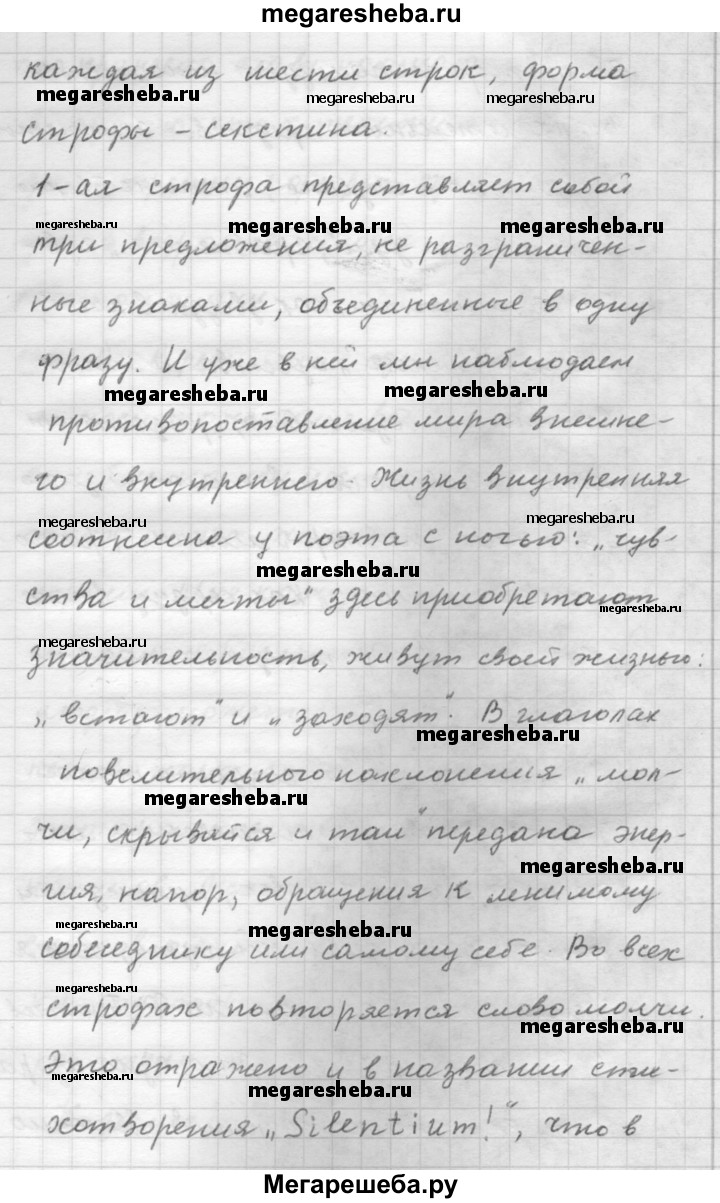 megaresheba.ru
каждая из шести строк, форма
megaresheba.ru megaresheba.ru megaresheba.ru
строфы - секстина.
1-ая строфа представляет собой
megaresheba.ru megaresheba.ru megaresheba.ru
три предложения, не разграничен-
ные знаками, объединенные в одну
фразу. И уже в ней мы наблюдаем
megaresheba.ru megaresheba.ru
противопоставление мира внешне-
го и внутреннего. Жизнь внутренняя
megaresheba.ru megaresheba.ru
соотнесена у поэта с ночью: „чув-
megaresheba.ru
ства и мечты" здесь приобретают
megaresheba.ru
megaresheba.ru
значительность, живут своей жизнью:
„встают" и „заходят". В глаголах
megaresheba.ru
повелительного наклонения „мол-
megaresheba.ru
чи, скрывайся и таи" передана энер-
megaresheba.ru
гия, напор, обращения к мнимому
megaresheba.ru megaresheba.ru
собеседнику или самому себе. Во всех
megaresheba.ru
строфах повторяется слово молчи.
megaresheba.ru
Это отражено и в названии сти-
megaresheba.ru megaresheba.ru
хотворения „Silentium!", что в
Мегарешеба.ру